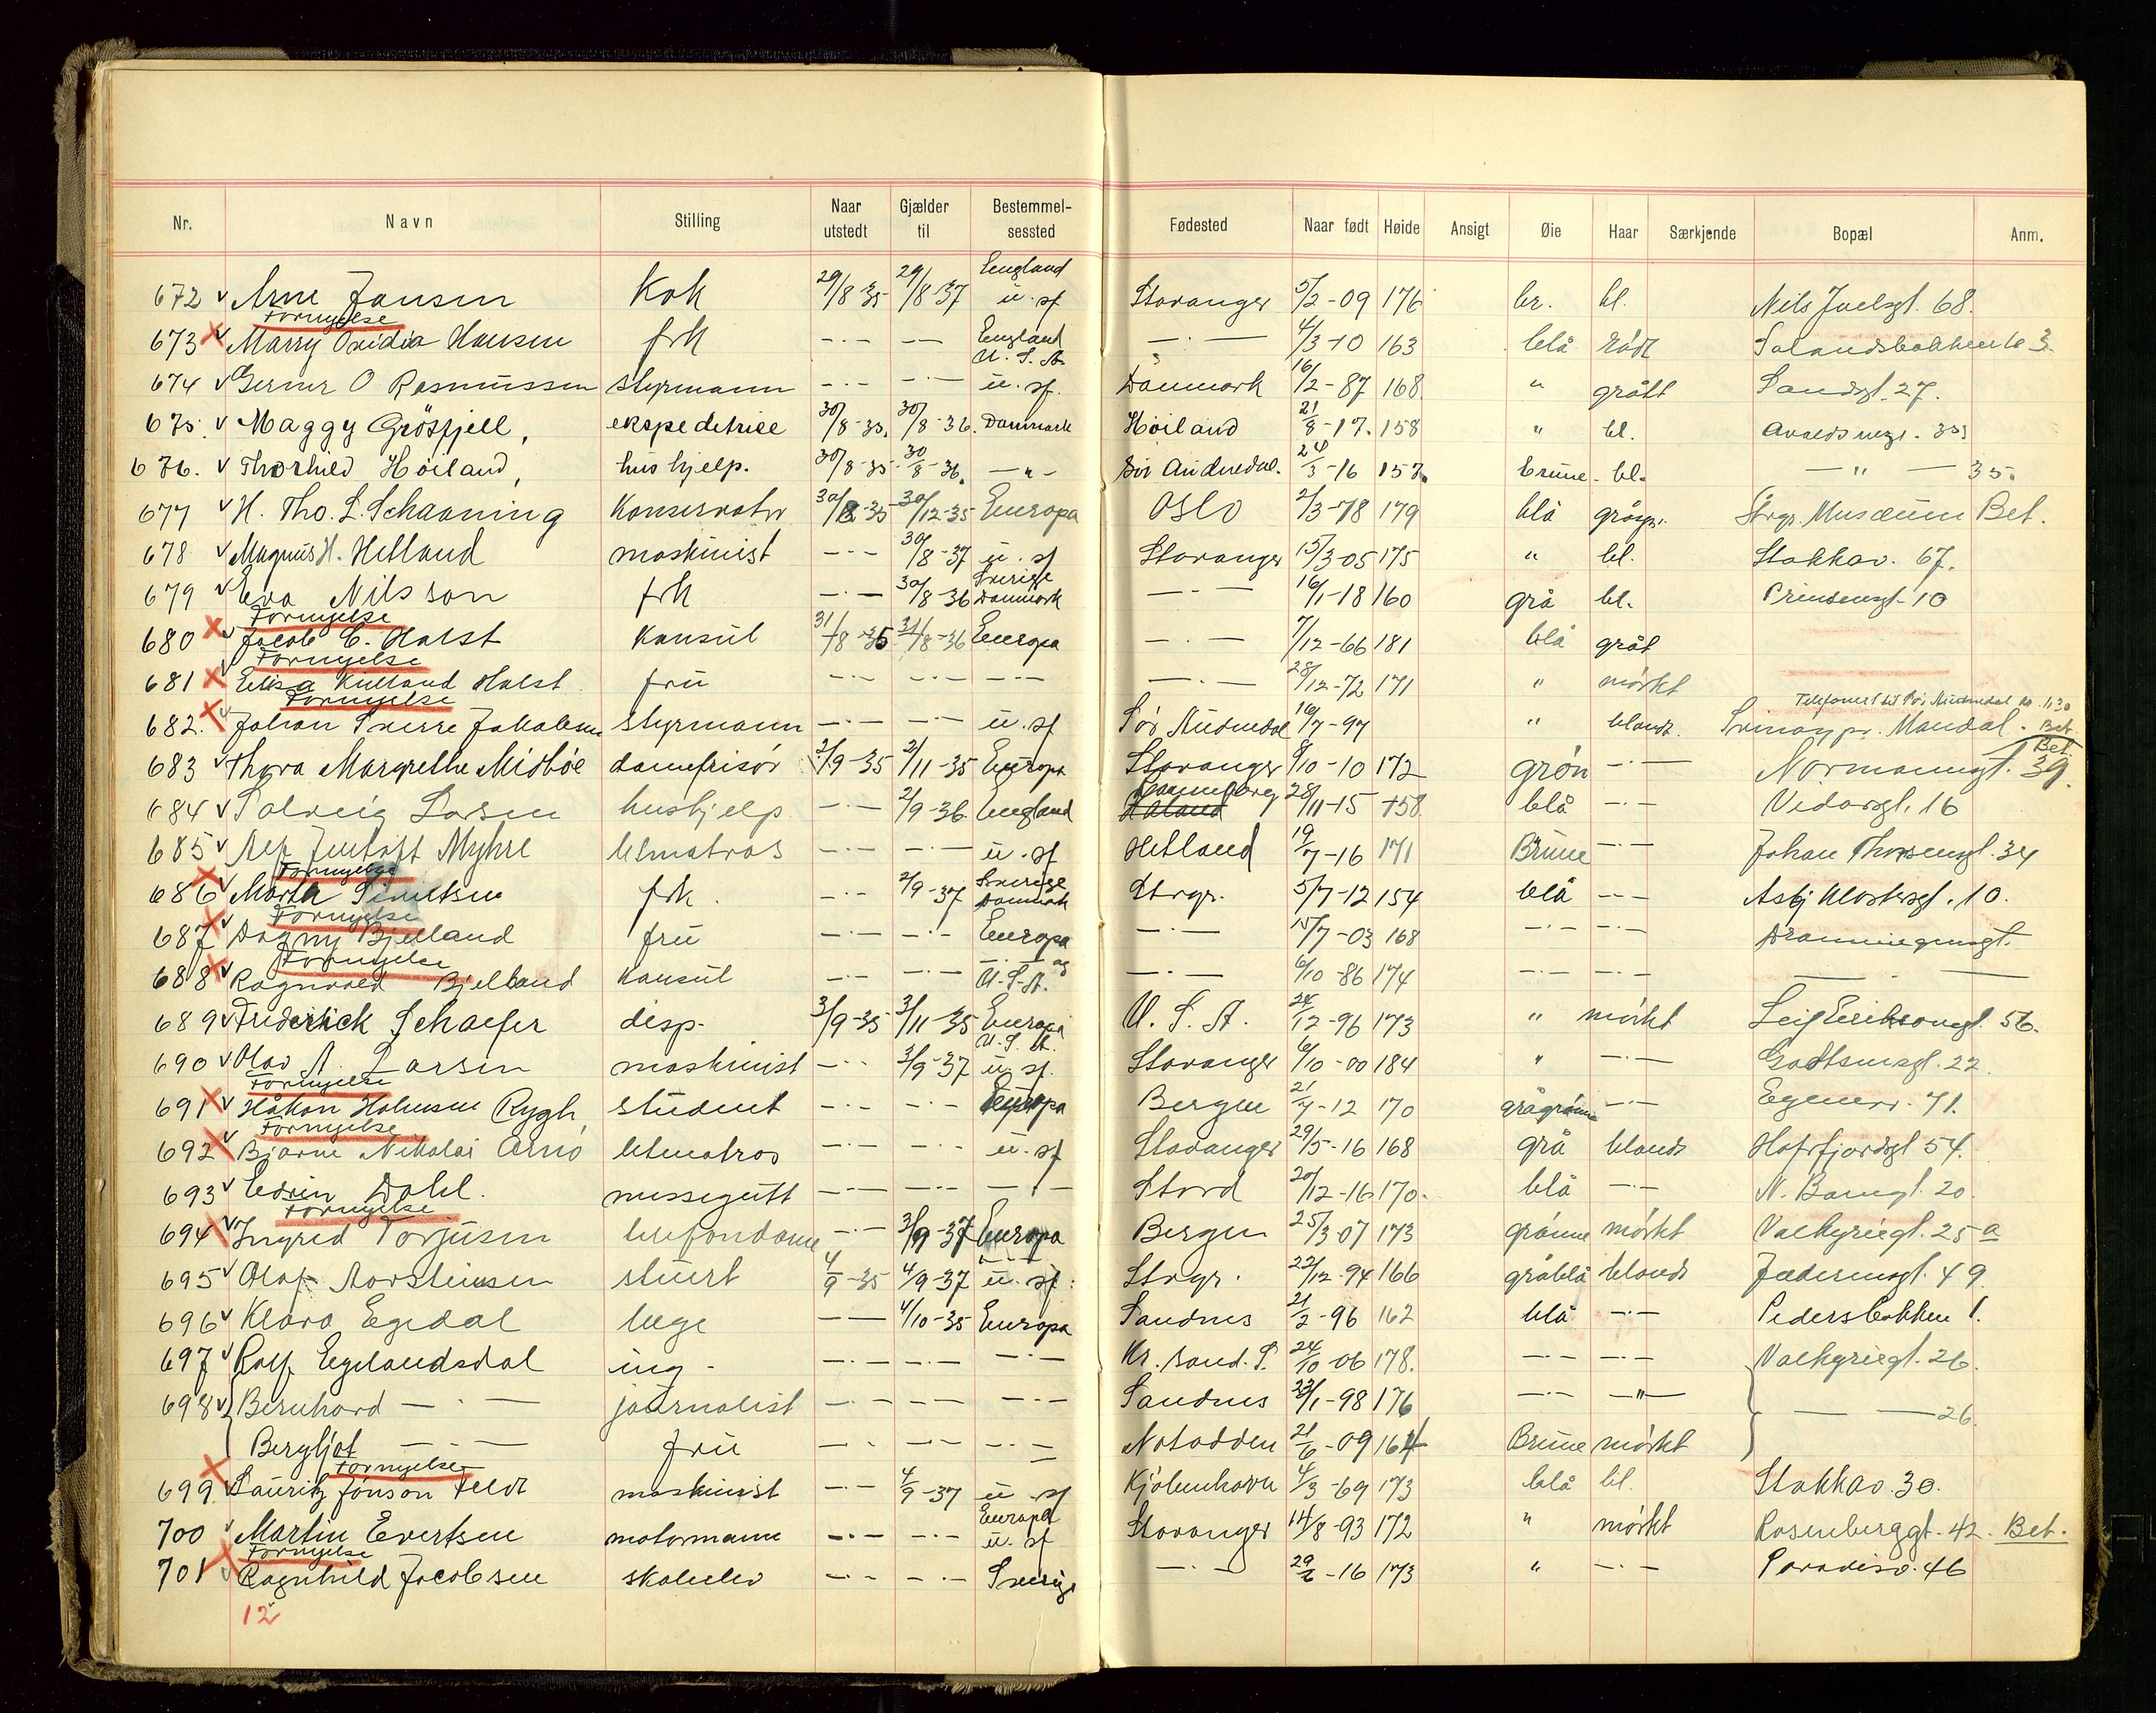 Nr. Navn Stilling Naar utstedt Gjælder til Bestemmelsessted Fødested Naar født Høide Ansigt Øie Haar Særkjende Bopæl Anm.
672 v Arne Jansen Kok 29/8-35 29/8-37 England u.sf Stavanger 5/2-09 176 br. bl. Nils Juelsgt. 68.
Fornyelse
673 x v Marry Ovidia Hansen frk —·— —— England U.S.A. —·— 4/3-10 163 blå rödt
674 v Gerner O Rasmussen styrmann —·— —·— u.sf. Danmark 16/2-87 168 " grått Sandsgt. 27.
675. v Maggy Grösfjell, ekspeditrise 30/8-35. 30/8-36. Danmark Höiland 21/8-17. 158 " bl.
676. v Thorhild Höiland, hushjelp. 30/8-35 30/8-36. —"— Sör Audnedal. 24/3-16 157. brune bl. —"— 35.
677 v H. Tho. L. Schaaning Konservator 30/8-35 30/12-35 Europa Oslo 2/3-78 179 blå gråspr. Stvgr. Musæum Bet.
678 v Magnus H. Hetland maskinist —·— 30/8-37 u.sf Stavanger 15/3-05 175 " bl. Stokkav. 67.
679 v Eva Nilsson frk —·— 30/8-36 Sverige Danmark —·— 16/1-18 160 grå bl. Prinsensgt. 10
Fornyelse
680 x v Jacob C. Holst Konsul 31/8-35 31/8-36 Europa —·— 7/12-66 181 blå gråt
Fornyelse
681 x v Elisa Kielland Holst fru —·— —·— —·— —·— 28/12-72 171 " mörkt
Fornyelse
682. x v Johan Sverre Jakobsen styrmann —·— —·— u.sf Sör Audnedal 16/7-97 " blondt. Mandal. Bet.
683 v Thora Margrethe Misböe damefrisör 2/9-35 2/11-35 Europa Stavanger 9/10-10 172 grön —·— Normannsgt. 39. Bet.
684 v Solveig Larsen hushjelp —·— 2/9-36 England 28/11-15 158 blå —·— Vidarsgt. 16
685 v Alf Jentoft Myhre letmatros —·— —·— u.sf Hetland 19/7-16 171 Brune —·— Johan Thorsensgt. 34
Fornyelse
686 x v Marta Simensen frk. —·— 2/9-37 Sverige Danmark Stvgr. 5/7-12 154 blå —·— Asbj Klostersgt. 10.
Fornyelse
687 x v Dagny Bjelland fru —·— —·— Europa —·— 15/7-03 168 —·— —·—
Fornyelse
688 x v Ragnvald Bjelland Konsul —·— —·— —·— og U.S.A. —·— 6/10-86 174 —·— —·— — —
689 v Frederick Schaefer disp. 3/9-35 3/11-35 Europa U.S.A. 24/12-96 173 " mörkt Leif Eriksonsgt. 56.
690 v Olav A. Larsen maskinist —·— 3/9-37 U.S.A. u.sf. Stavanger 6/10-00 184 " —·— 22
Fornyelse
691 x v Håkon Holmsen Rygh, student —·— —·— Europa Bergen 21/7-12 170 grågrönne —·— Egenesv. 71.
Fornyelse
692 x v Bjarne Nikolai Arnö letmatros —·— —·— u.sf Stavanger 29/5-16 168 grå blondt Hafrsfjordsgt 54.
693 v Edvin Dahl. messegutt —·— —·— —·— Stord 20/12-16 170. blå —·— N. Banegt. 20.
Fornyelse
694 x v Ingrid Torjusen telefondame —·— 3/9-37 Europa Bergen 25/3 07 173 grönne mörkt Valkyriegt. 25 a
695 v Olaf Aorstensen stuert 4/9-35 4/9-37 u.sf. Stvgr. 22/12-94 166 gråblå blondt Jædernesgt. 49
696 v Klara Egedal læge —— 4/10-35 Europa Sandnes 21/2-96 162 blå —·— Pedersbakken 1.
697 v Rolf Egelandsdal ing. —·— —·— —·— Kr. sand. S. 24/10 06 178. —·— —·— Valkyriegt. 26.
698 v Bernhard —·— journalist —·— —·— —·— Sandnes 23/1-98 176 —·— —"— — — 26.
Bergljot —·— fru —·— —·— —·— Notodden 21/6-09 164 Brune mörkt
Fornyelse
699 x v Lauritz Jonson Feldt maskinist —·— 4/9-37 u.sf Kjöbenhavn 4/3-69 173 blå bl. Stokkav. 30.
700 v Martin Evertsen motormann —·— —·— Europa u.sf Stavanger 14/8-93 172 " mörkt Rosenberggt. 42. Bet.
Fornyelse
701 x v Ragnhild Jacobsen skoleelev —·— —·— Sverige —·— 29/2-16 173 " —·— Paradisv. 46
12